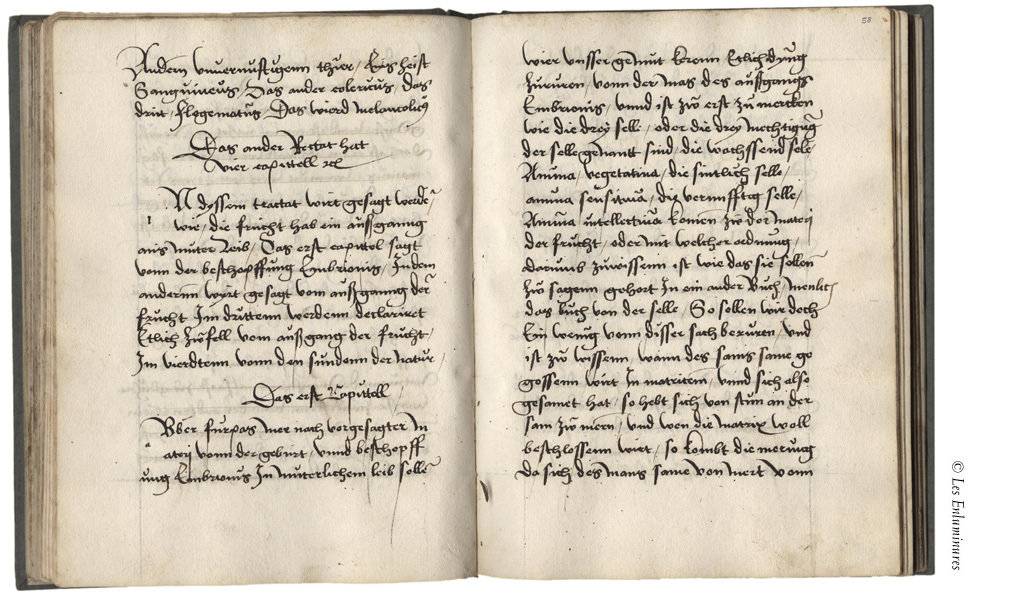 Andern vnuernufftigenn thier / Eyns heist
Sanguineus / Das ander colericus / das
drit / flegematus / Das vierd melancolicus
Das ander Tractat hatt
vier capittell
In dyssem tractat wirt gesagt werde
wie / die frucht hab ein aussganng
aus muter Leib / Das erst capittel sagt
vonn der beschopffung Embrionis / In dem
anderm wyrt gesagt vom aussganng der
frucht Im drittenn werdenn declariret
Etlich Zufell vom aussgang der frucht /
Im vierdtenn vonn den sundenn der Natur
Das erst Capittell
Vber furpas mer nach vorgesagter m
aterj vonn der geburt / vnnd beschopff
ung Embrionis In muterlichem leib solle
58
wier vnsser gemut keren Etlich ding
Zururen / vonn der mas des aussgangs
Embrionis / vnnd ist zw erst zu mercken
wie die drey selle / oder die drey mechtigug
der selle genant sind / die wachssend sele
Anima / vegetatiua / die sintlich selle /
anima sensitiua / die vernufftig selle /
Anima intellectiua komen zw der materj
der frucht / oder mit welcher ordnung /
darumb zuwissenn ist wie das sie sollen
zw sagenn gehort In ein ander Buch /
das buch von der selle / So sollen wir doch
Ein wenig vonn disser sach beruren / vnd
ist zw wissenn / wann des mans same go
gossenn wirt In matricem / vnnd sich also
gesamet hat / so hebt sich von stun an der
sam zw mern / vnd wen die matrix woll
beschlossenn wirt / so kombt die merung
da sich des mans same von mert vonn
© Les Enluminures